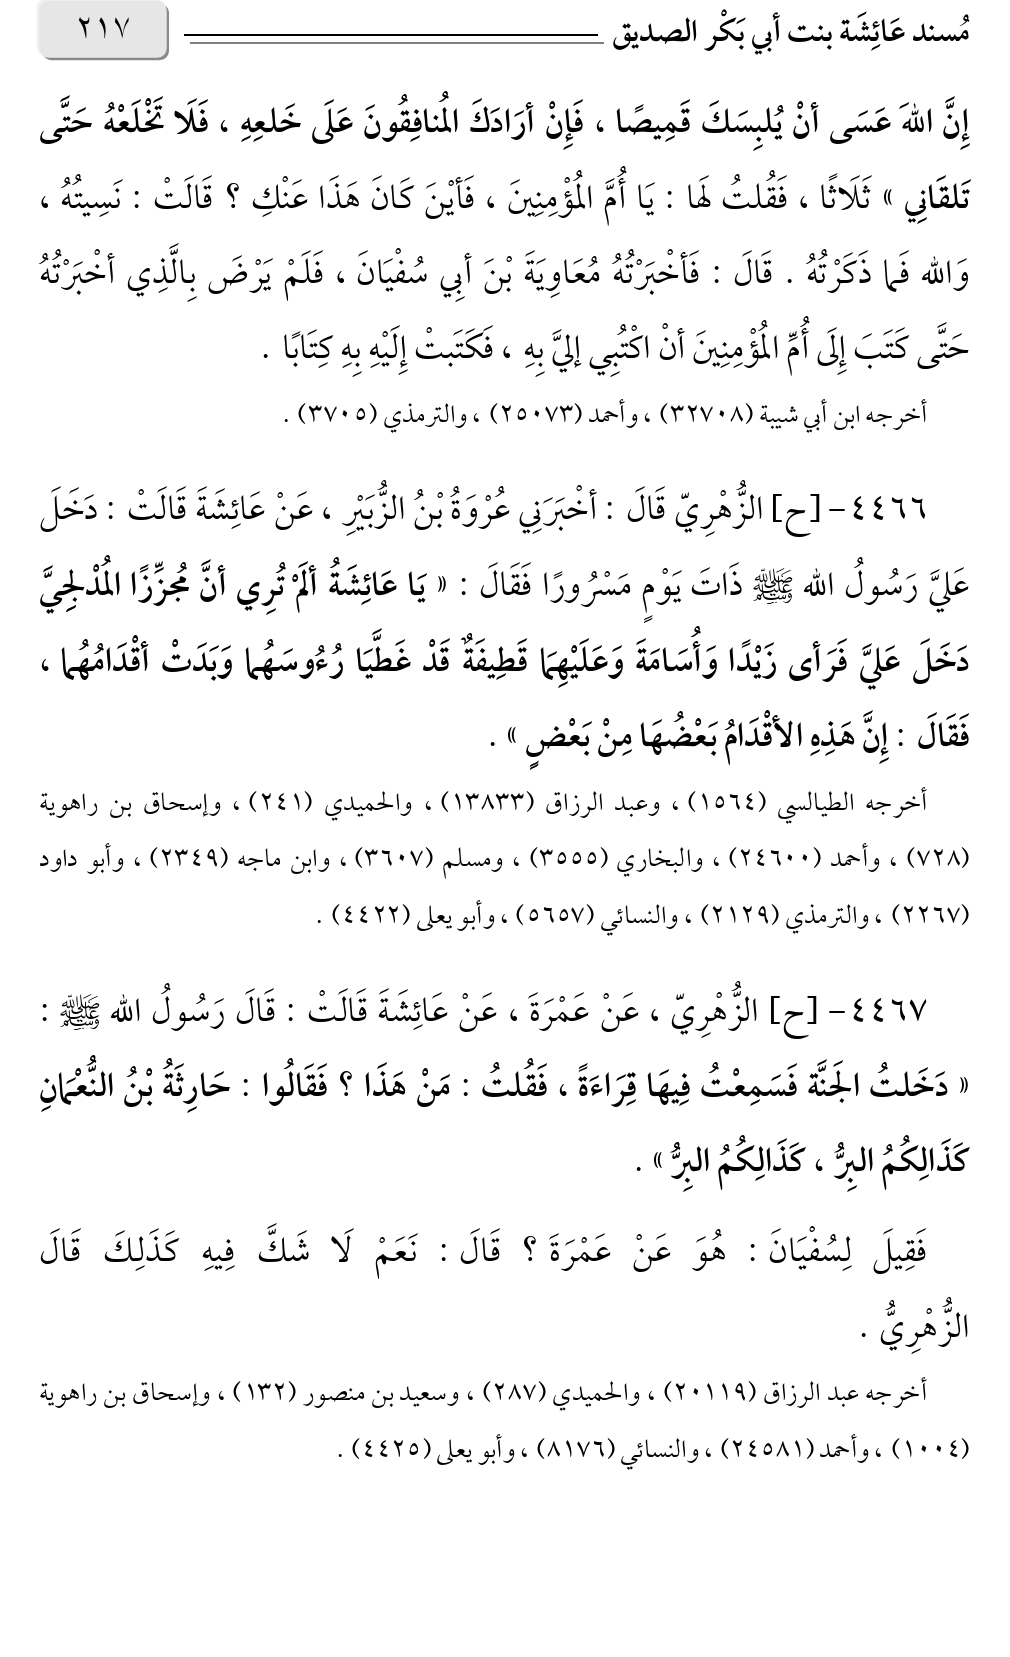 مُسند عَائِشَة بنت أبي بَكْر الصديق ٢١٧
إِنَّ اللهَ عَسَى أنْ يُلبِسَكَ قَمِيصًا ، فَإِنْ أرَادَكَ المُنافِقُونَ عَلَى خَلعِهِ ، فَلَا تَخْلَعْهُ حَتَّى
تَلقَانِي » ثَلَاثًا ، فَقُلتُ لَها : يَا أُمَّ المُؤْمِنِينَ ، فَأيْنَ كَانَ هَذَا عَنْكِ ؟ قَالَتْ : نَسِيتُهُ ،
وَالله فَما ذَكَرْتُهُ . قَالَ : فَأخْبَرْتُهُ مُعَاوِيَةَ بْنَ أبِي سُفْيَانَ ، فَلَمْ يَرْضَ بِالَّذِي أخْبَرْتُهُ
حَتَّى كَتَبَ إِلَى أُمِّ المُؤْمِنِينَ أنْ اكْتُبِي إليَّ بِهِ ، فَكَتَبتْ إِلَيْهِ بِهِ كِتَابًا .
أخرجه ابن أبي شيبة (٣٢٧٠٨) ، وأحمد (٢٥٠٧٣) ، والترمذي (٣٧٠٥) .
٤٤٦٦- [ح] الزُّهْرِيّ قَالَ : أخْبَرَنِي عُرْوَةُ بْنُ الزُّبَيْرِ ، عَنْ عَائِشَةَ قَالَتْ : دَخَلَ
عَلَيَّ رَسُولُ الله ﷺ ذَاتَ يَوْمٍ مَسْرُورًا فَقَالَ : « يَا عَائِشَةُ ألَمْ تُرِي أنَّ مُجزِّزًا المُدْلِجِيَّ
دَخَلَ عَليَّ فَرَأى زَيْدًا وَأُسَامَةَ وَعَلَيْهِمَا قَطِيفَةٌ قَدْ غَطَّيَا رُءُوسَهُما وَبَدَتْ أقْدَامُهُما ،
فَقَالَ : إِنَّ هَذِهِ الأقْدَامُ بَعْضُهَا مِنْ بَعْضٍ » .
أخرجه الطيالسي (١٥٦٤) ، وعبد الرزاق (١٣٨٣٣) ، والحميدي (٢٤١) ، وإسحاق بن راهوية
(٧٢٨) ، وأحمد (٢٤٦٠٠) ، والبخاري (٣٥٥٥) ، ومسلم (٣٦٠٧) ، وابن ماجه (٢٣٤٩) ، وأبو داود
(٢٢٦٧) ، والترمذي (٢١٢٩) ، والنسائي (٥٦٥٧) ، وأبو يعلى (٤٤٢٢) .
٤٤٦٧- [ح] الزُّهْرِيّ ، عَنْ عَمْرَةَ ، عَنْ عَائِشَةَ قَالَتْ : قَالَ رَسُولُ الله ﷺ :
« دَخَلتُ الجَنَّة فَسَمِعْتُ فِيهَا قِرَاءَةً ، فَقُلتُ : مَنْ هَذَا ؟ فَقَالُوا : حَارِثَةُ بْنُ النُّعْمَانِ
كَذَالِكُمُ البِرُّ ، كَذَالِكُمُ البِرُّ » .
فَقِيلَ لِسُفْيَانَ : هُوَ عَنْ عَمْرَةَ ؟ قَالَ : نَعَمْ لَا شَكَّ فِيهِ كَذَلِكَ قَالَ
الزُّهْرِيُّ .
أخرجه عبد الرزاق (٢٠١١٩) ، والحميدي (٢٨٧) ، وسعيد بن منصور (١٣٢) ، وإسحاق بن راهوية
(١٠٠٤) ، وأحمد (٢٤٥٨١) ، والنسائي (٨١٧٦) ، وأبو يعلى (٤٤٢٥) .